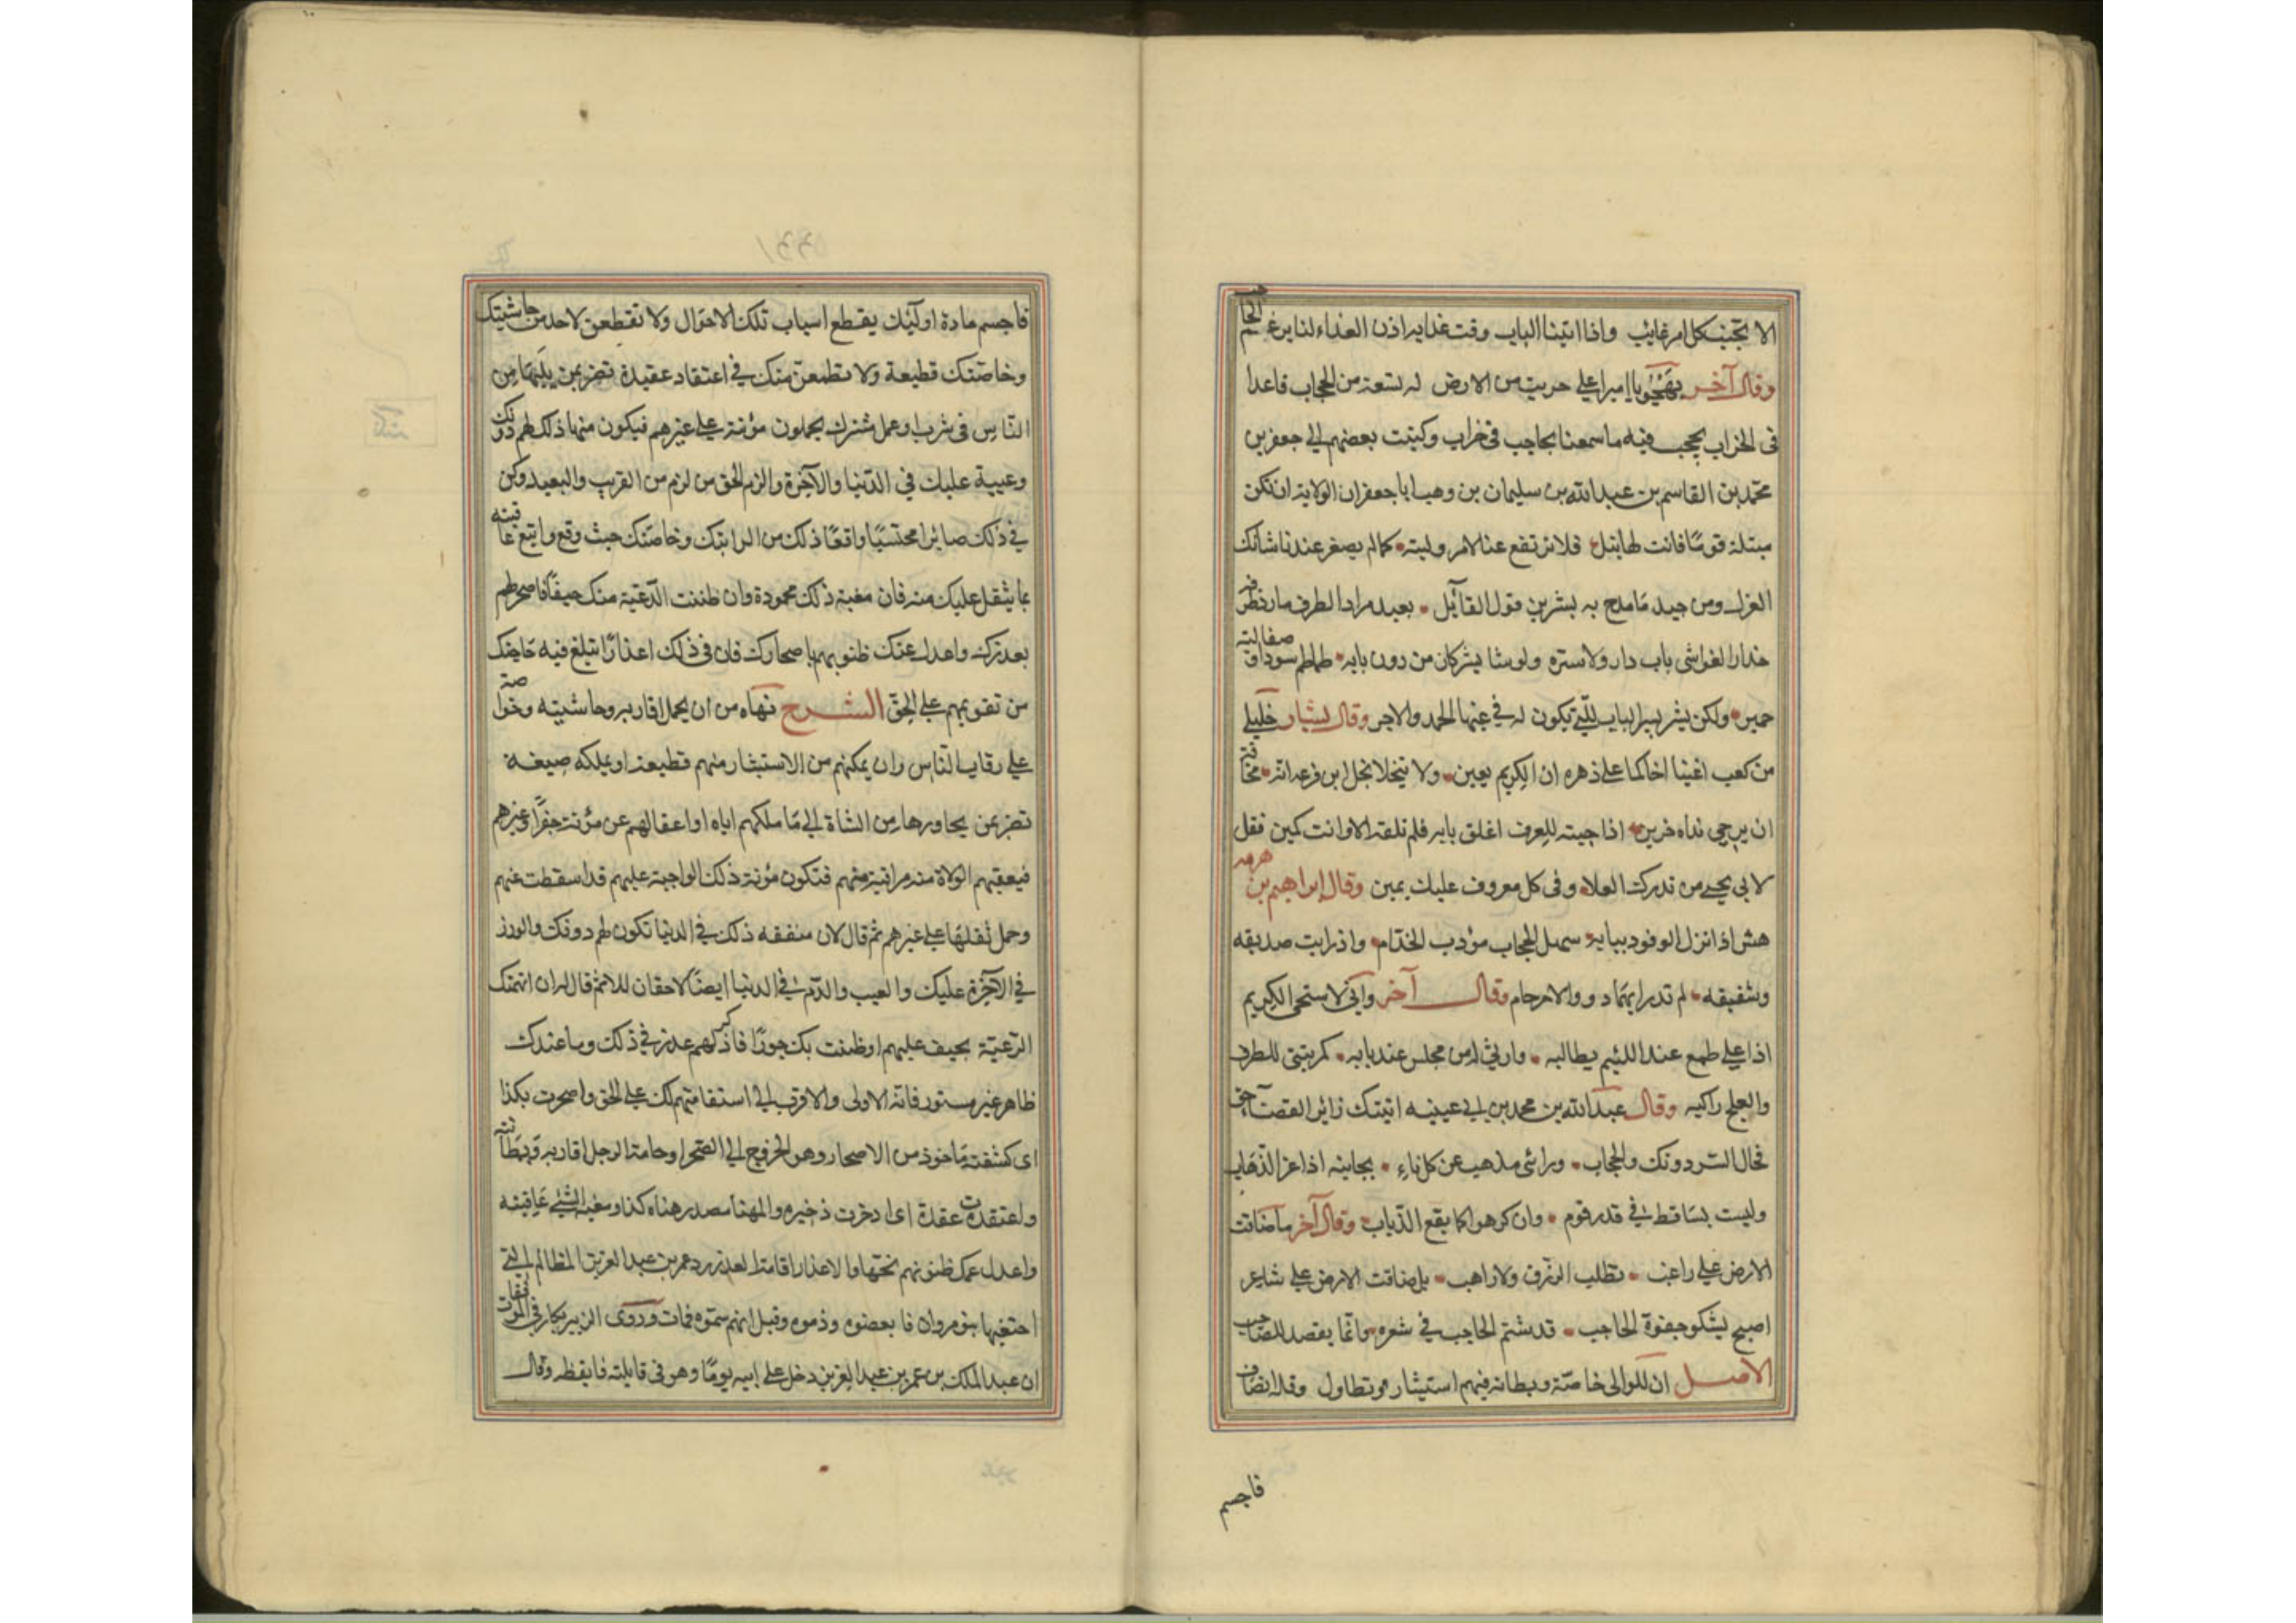 الا تجنبكل امر غايب واذا اتينا الباب وقت غدايه اذن الغداء لنا برغم الحاجب
وقال آخر يهجو يا اميرا على جريب من الارض له تسعة من الحجاب قاعدا
فى الخراب يحجب فيه ما سمعنا بحاجب فى خراب وكتبت بعضهم الى جعفر بن
محمد بن القاسم بن عبيد الله بن سليمان بن وهب ابا جعفر ان الولاية ان تكن
مبتلة قومًا فانت لها نبل فلا ترتفع عنا لامر وليته كما لم يصغر عندنا شانك
العزل ومن جيد ما مدح به بشر بن قول القائل بعيد مراد الطرف مارد طرفه
حذار الغواشى باب دار ولا ستره ولو شا بشر كان من دون بابه طماطم سود او صقالبة
حمر ولكن بشر يسر الباب للتى يكون له فى غبها الحمد والاجر وقال بشار خليلى
من كعب اعينا اخاكما على دهره ان الكريم يعين ولا تبخلا بخل ابن قزعة انه مخافة
ان يرجى نداه حزين اذا جيته للعرف اغلق بابه فلم تلقه الا وانت كمين فقل
لابى يحيى من تدرك العلا وفى كل معروف عليك يمين وقال ابراهيم بن هرمه
هش اذا نزل الوفود ببابه سهل الحجاب مؤدب الخدام واذا رايت صديقه
وشقيقه لم تدر ايهما ذوو الارحام وقال آخر وانى لاستحى الكريم
اذا على طمع عند اللئيم يطالبه وارثى له من مجلس عند بابه كمرثيتى للطرف
والعلج راكبه وقال عبد الله بن محمد بن ابى عيينه اتيتك زائرا لقضآ حق
فحال الستر دونك والحجاب وراى مذهب عن كل ناء بجانبه اذا عز الذهاب
وليست بساقط فى قدر قوم وان كرهوا كما يقع الذباب وقال آخر ما ضاقت
الارض على راغب تطلب الرزق ولا راهب بل ضاقت الارض على شاعر
اصبح يشكو جفوة الحاجب قد شتم الحاجب فى شعره وانما يقصد للصاحب
الاصل ان للوالى خاصة وبطانه فيهم استيثار وتطاول وقلة انصاف
فاجسم
فاجسم مادة اولئك يقطع اسباب تلك الاحوال ولا تقطعن لاحد من حاشيتك
وخاصتك قطيعة ولا تطمعن منك فى اعتقاد عقيدة تضر بمن يليها من
الناس فى شرب او عمل مشترك يحملون مؤنته على غيرهم فيكون مهنا ذلك لهم دونك
وعيبه عليك فى الدنيا والآخرة والزم الحق من لزمه من القريب والبعيد وكن
فى ذلك صابرا محتسبًا واقعًا ذلك من قرابتك وخاصتك حيث وقع وابتغ عاقبته
بما يثقل عليك منه فان مغبة ذلك محمودة وان ظننت الرعية منك حيفًا فاصحر لهم
بعذرك واعدل عنك ظنونهم باصحارك فان فى ذلك اعذارًا تبلغ فيه حاجتك
من تقويمهم على الحق الشرح نهاه من ان يحمل اقاربه وحاشيته وخواصه
على رقاب الناس وان يمكنهم من الاستيثار منهم قطيعة او يملكه ضيعة
تضر بمن يجاورها من الشاة الى ما ملكهم اياه او اعقالهم عن مؤنة حفرًا وغيرهم
فيعقبهم الولاة منه مراقبة منهم فتكون مؤنة ذلك الواجبة عليهم قد اسقطت عنهم
وحمل ثقلها على غيرهم ثم قال لان منفقه ذلك فى الدنيا تكون لهم دونك والوزر
فى الآخرة عليك والعيب والذم فى الدنيا ايضًا لاحقان للا ثم قال له ان اتهمتك
الرعية بحيف عليهم او ظنت بك جورًا فاذكر لهم عذرك فى ذلك وما عندك
ظاهر غير مستور فانه الاولى والاقرب الى استقامتهم لك على الحق واصحرت بكذا
اى كشفته ماخوذ من الاصحار وهو الخروج الى الصحرا وحامة الرجل اقاربه وبطانته
واعتقدت عقدة اى ادخرت ذخيره والمهنا مصدر هناه كذا ومغبة الشيء عاقبته
واعدل عنك ظنونهم نحها والاعذار اقامة العذر رد عمر بن عبد العزيز المظالم التى
احتقبها بنو مروان فابغضوه وذموه وقيل انهم سموه فمات وروى الزبير بكار فى الموفقيات
ان عبد الملك بن عمر بن عبد العزيز دخل على ابيه يومًا وهو فى قايلته فايقظه وقال